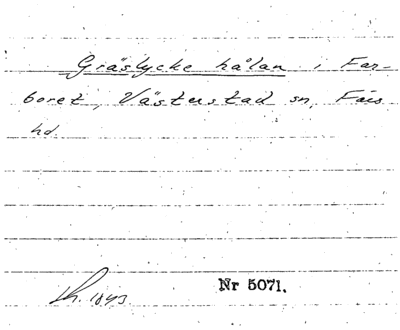 Gräslycke hålan i Far-
boret, Västerstad sn, Färs
hd.
1843
Nr 5071.